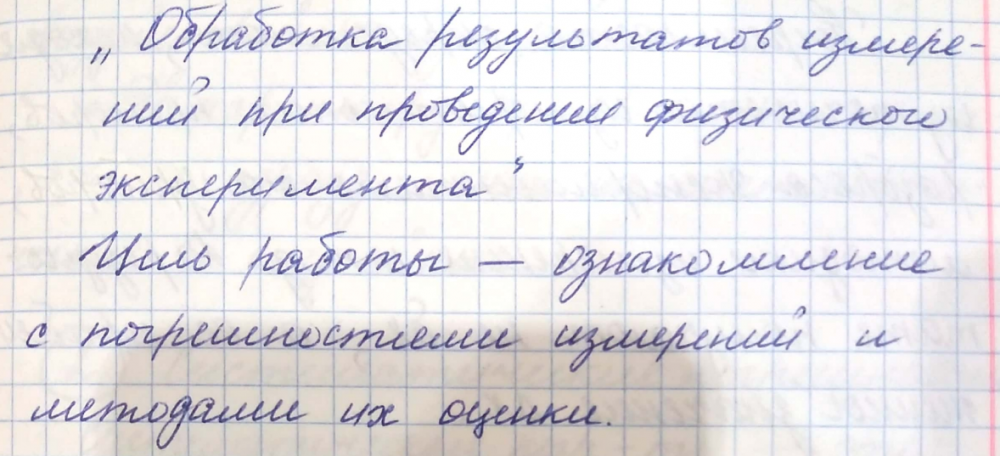 „Обработка результатов измере-
ний при проведении физического
эксперимента“
Цель работы — ознакомление
с погрешностями измерений и
методами их оценки.